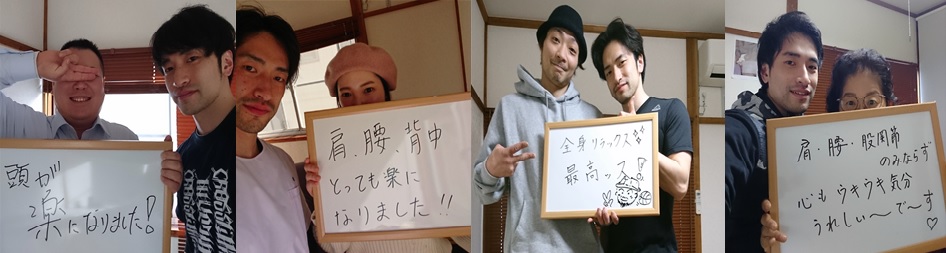 頭が
楽になりました!
肩、腰、背中
とっても楽に
なりました!!
全身リラックス
最高ッス!
肩・腰・股関節
のみならず
心もウキウキ気分
うれしい〜で〜す♡